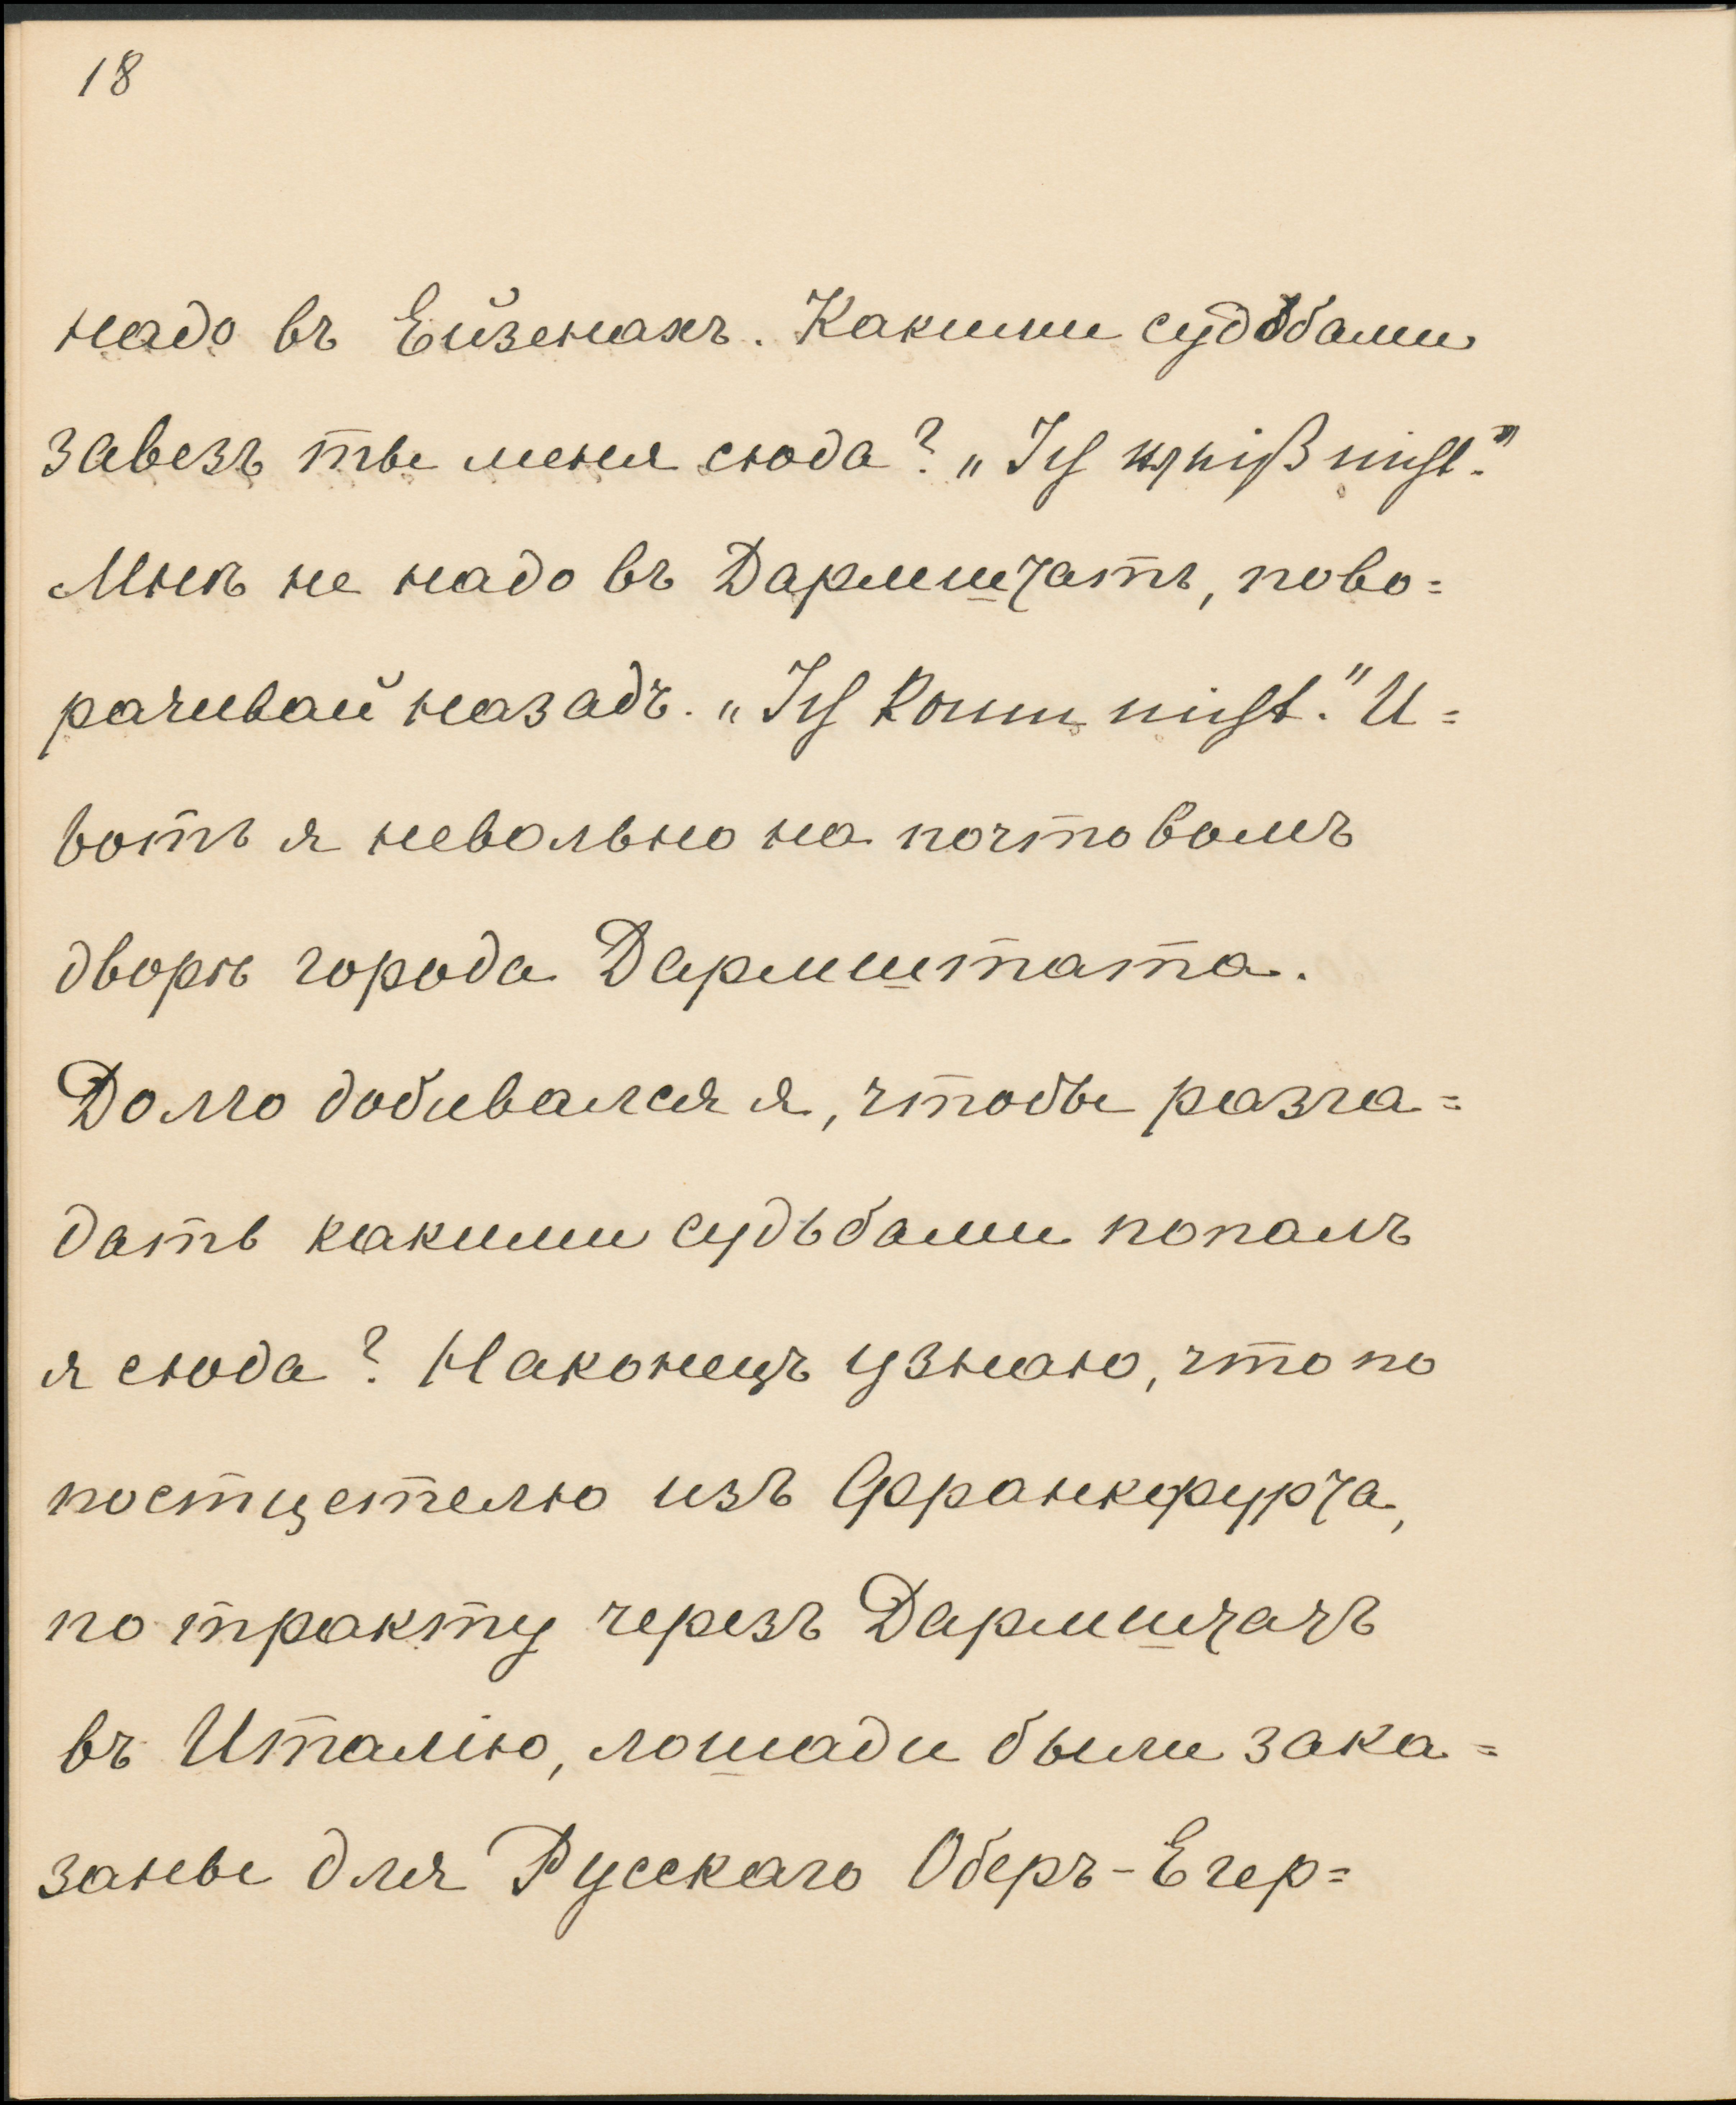 18
надо въ Ейзенахъ. Какими судьбами
завезъ ты меня сюда? „Ich weiß nicht.”
Мнѣ не надо въ Дармштатъ, пово=
рачивай назадъ. „Ich kann nicht.” И=
вотъ я невольно на почтовомъ
дворѣ города Дармштата.
Долго добивался я, чтобы разга=
дать какими судьбами попалъ
я сюда? Наконецъ узнаю, что по
постцетелю изъ Франкфурта,
по тракту черезъ Дармштатъ
въ Италію, лошади были зака=
заны для Русскаго Оберъ-Егер=